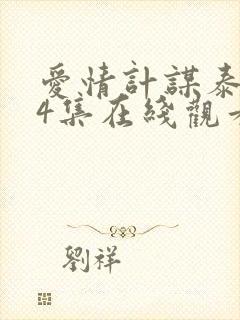 愛情計謀泰
4集在綫觀
劉祥